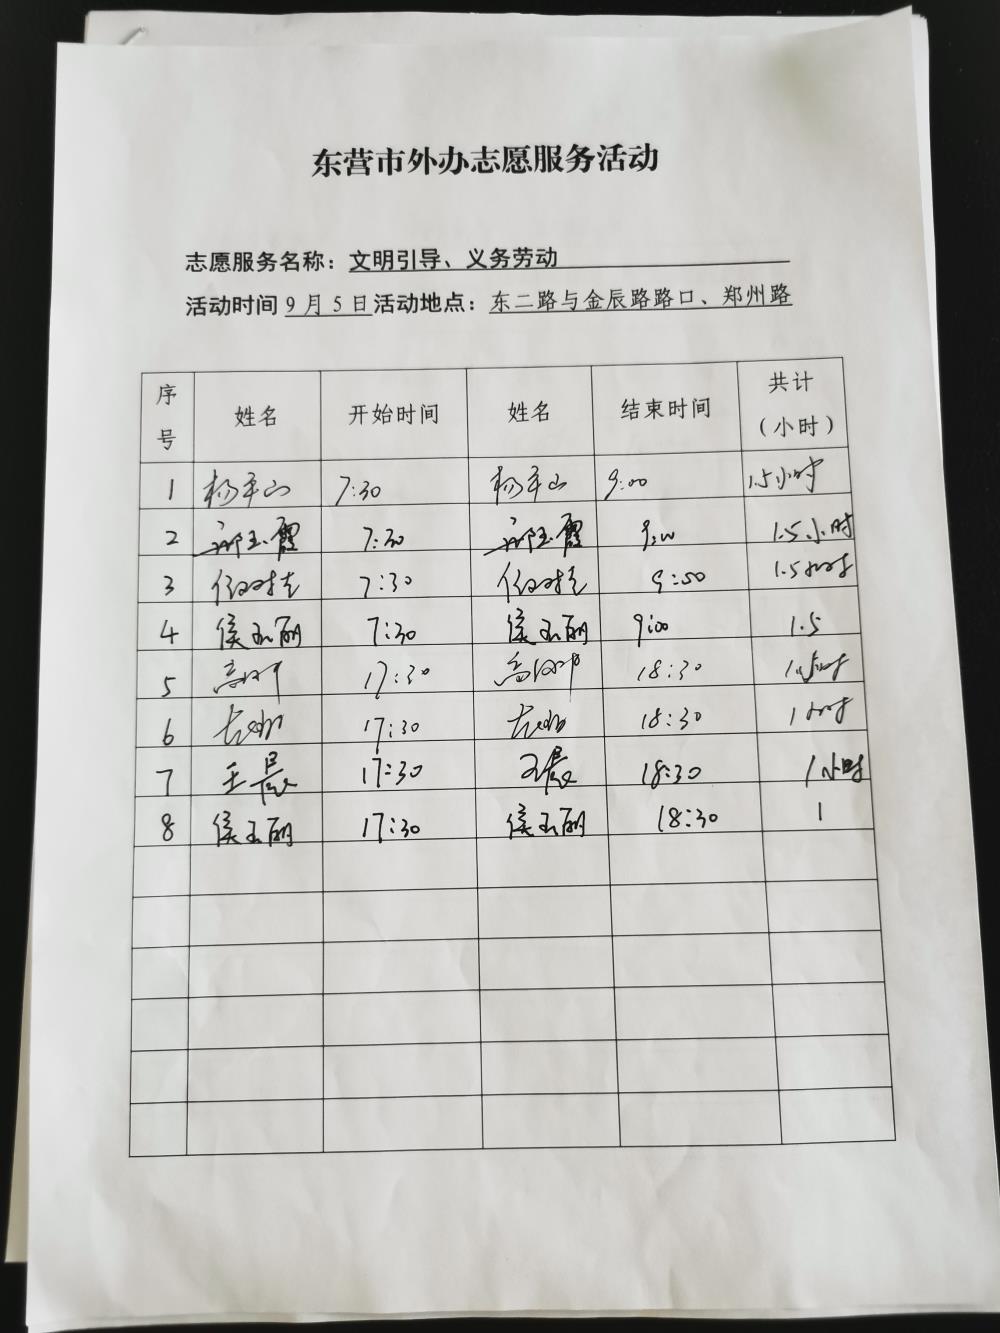 东营市外办志愿服务活动
志愿服务名称：文明引导、义务劳动
活动时间 9月5日 活动地点：东二路与金辰路路口、郑州路
序号 姓名 开始时间 姓名 结束时间 共计（小时）
1 杨平山 7:30 杨平山 9:00 1.5小时
2 7:30 9:00 1.5小时
3 7:30 9:00 1.5小时
4 侯玉丽 7:30 侯玉丽 9:00 1.5
5 17:30 18:30 1小时
6 17:30 18:30 1小时
7 王晨 17:30 王晨 18:30 1小时
8 侯玉丽 17:30 侯玉丽 18:30 1